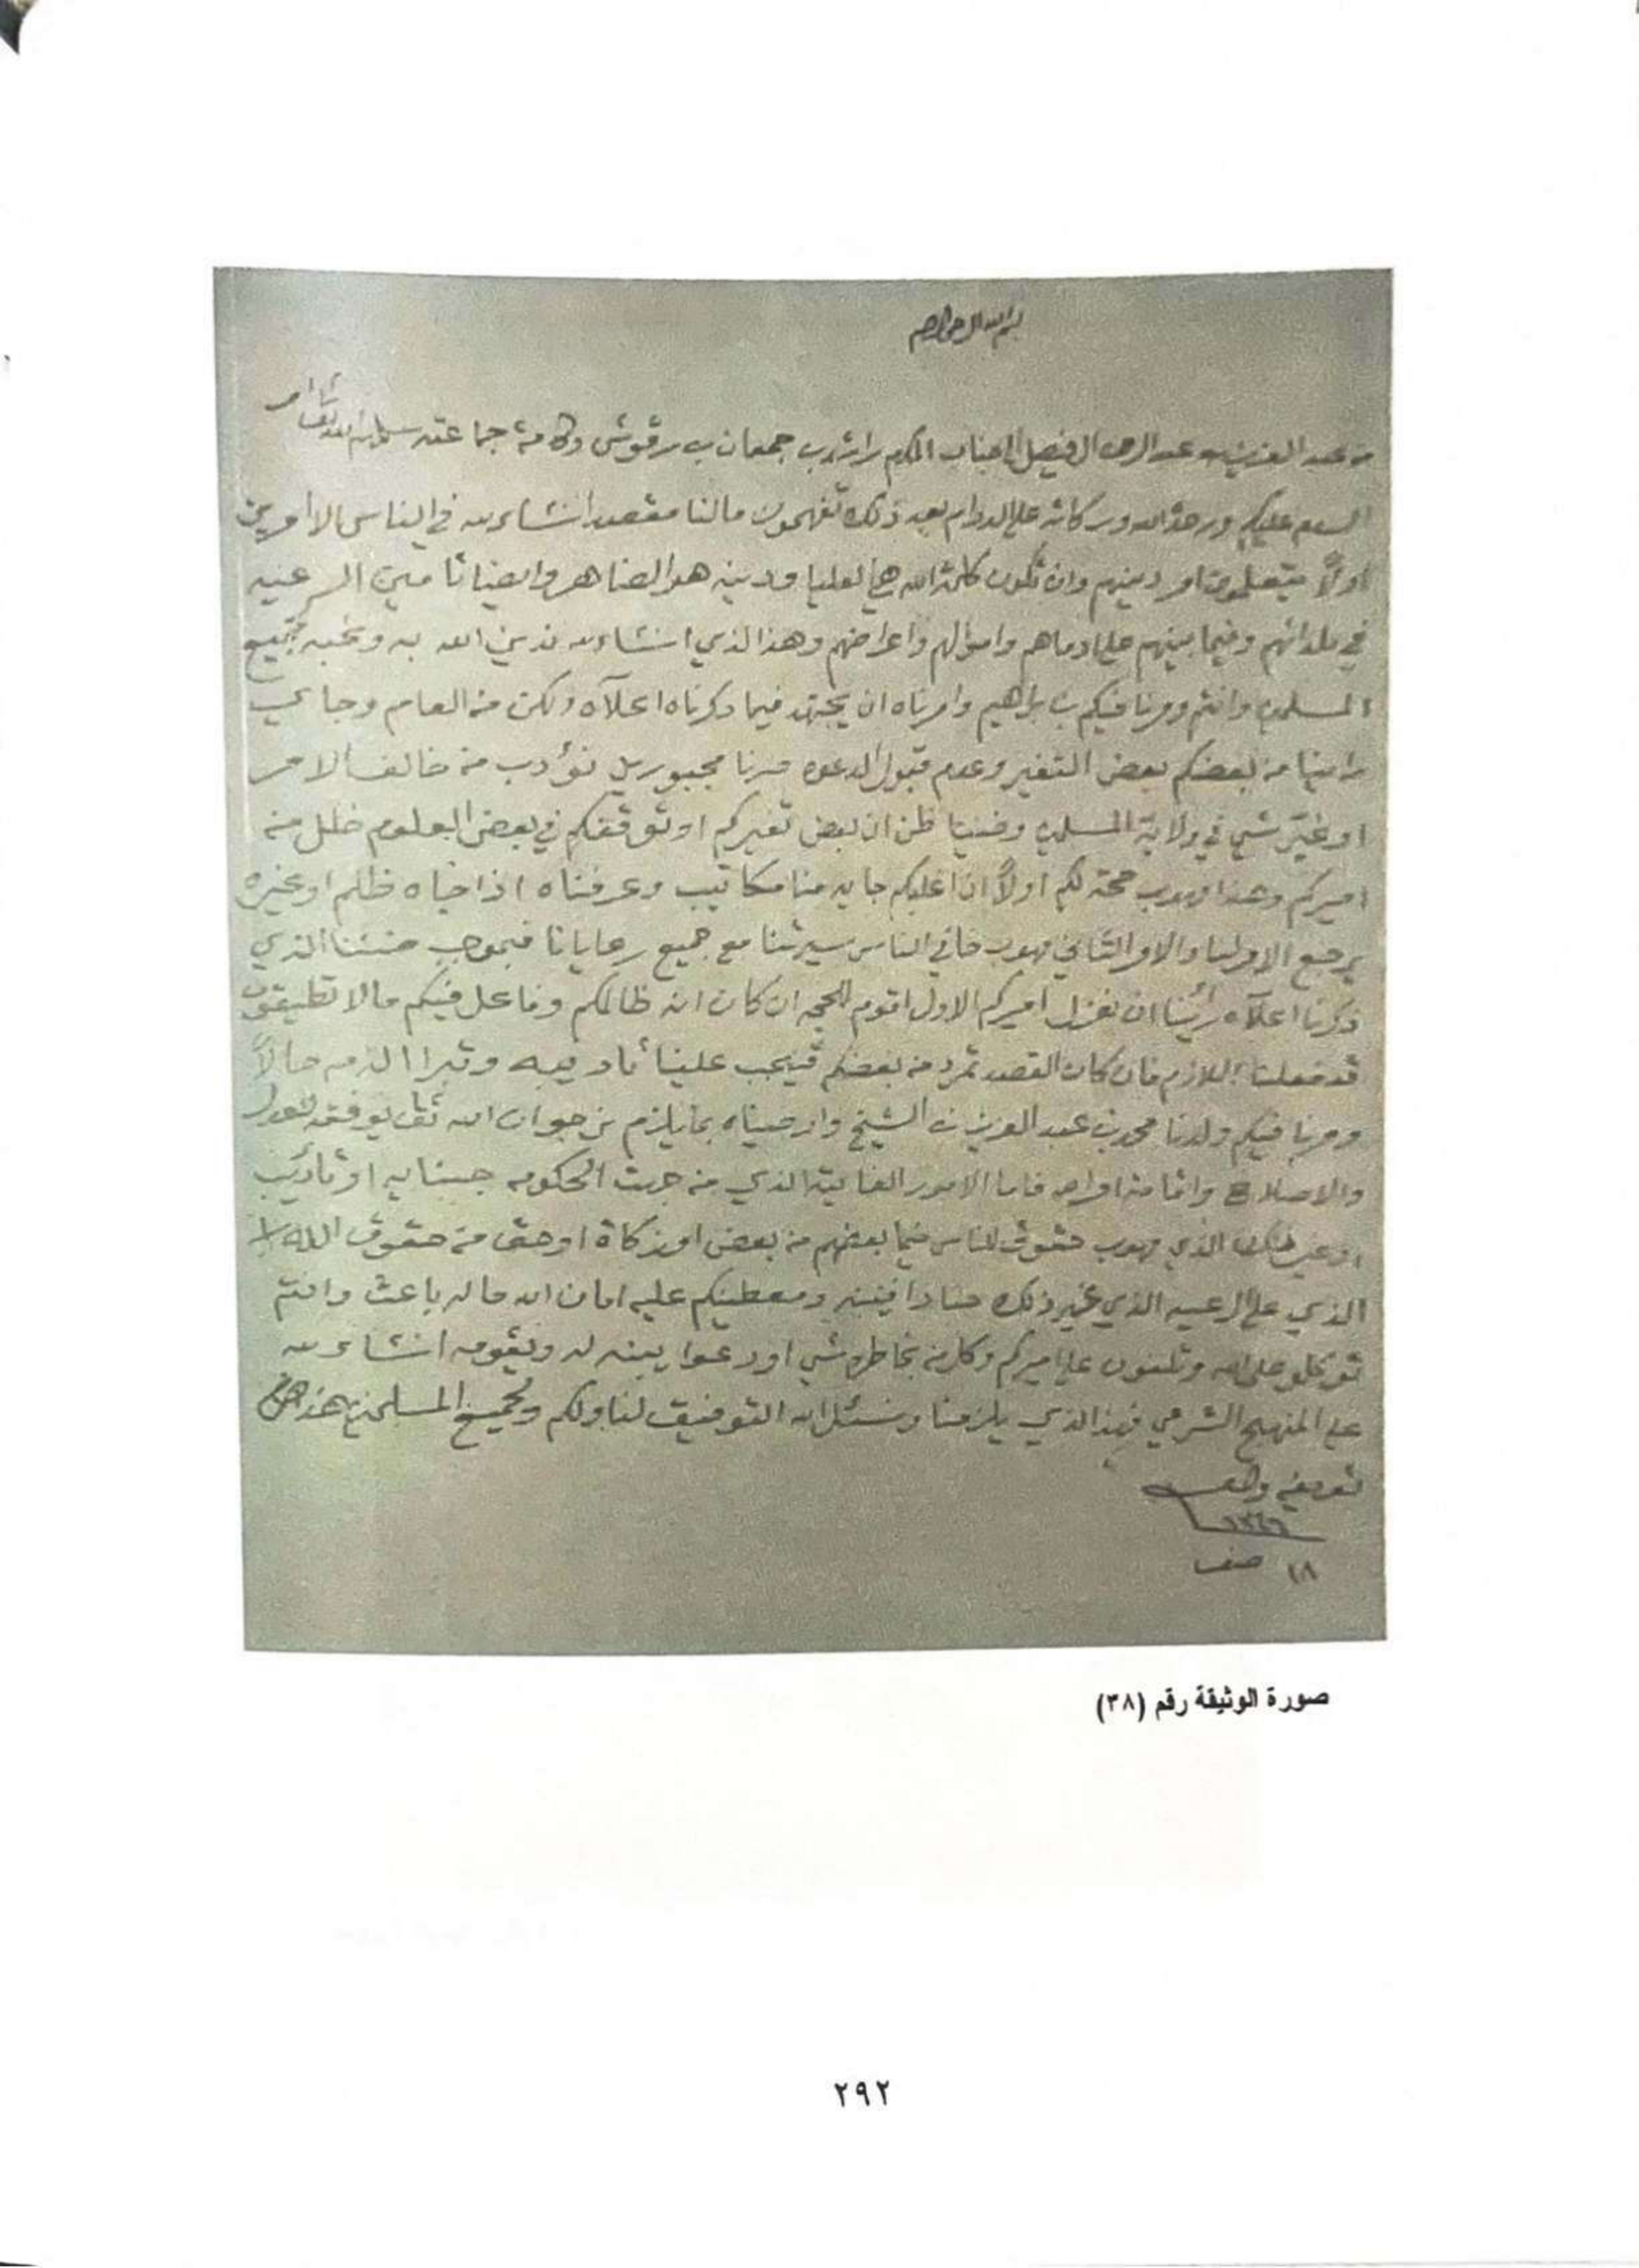 بسم الله الرحمن الرحيم
من عبد العزيز بن عبد الرحمن ال فيصل الى جناب المكرم راشد بن جمعان بن رقوش وكافة جماعته سلمهم الله تعالى
السلام عليكم ورحمة الله وبركاته على الدوام بعد ذلك تفهمون مالنا مقصد انشاء الله في الناس الا امرين
اولاً يتعلمون امر دينهم وان تكون كلمة الله هي العليا ودينه هو الضاهر وايضا تامين الرعيه
في بلدانهم وفيما بينهم على دماهم واموالهم واعراضهم وهذا الذي انشاء الله ندين الله به ونحبه لجميع
المسلمين وانتم ومرنا فيكم بن براهيم وامرناه ان يجتهد فيما ذكرناه اعلاه ولكن من العام وجاي
راينا من بعضكم بعض التغير وعدم قبول الدعوه صرنا مجبورين نؤدب من خالف الامر
او غيّر شي في ولاية المسلمين وفينا ظن ان بعض تغيركم او توقفكم في بعض العلوم خلل من
اميركم وهذا مهوب حجة لكم اولاً ان اغليكم جايه منا مكاتيب وعرفناه اذا جاه ظلم او غيره
يرجع الامر لنا والامر الثاني مهوب خافي الناس سيرتنا مع جميع رعايانا فبموجب الذي
ذكرنا اعلاه رأينا ان نعزل اميركم الاول اقوم للحجه ان كان انه ظالمكم وفاعل فيكم مالا تطيقون
قد فعلنا اللازم فان كان القصد تمرد من بعضكم فيجب علينا تاديبه وتبرا الذمه حالاً
ومرنا فيكم ولدنا محمد بن عبد العزيز بن الشيخ واوصيناه بما يلزم نرجو ان الله تعالى يوفقه للعدل
والاصلاح واقامة اوامر فاما الامور الفايتة الذي من جهت الحكومه جنايه او تأديب
او غير الذي مهوب حقوق للناس فيما بعضهم من بعض او زكاة او حق من حقوق الله
الذي على الرعيه الذي غير ذلك حنا دافنينه ومعطينكم عليه امان الله ما له باعث وانتم
توكلو على الله وتلفون على اميركم وكل من بخاطره شي او دعوا يبينه له ويقومه انشاء الله
على المنهج الشرعي فهذا الذي يلزمنا ونسئل الله التوفيق لنا ولكم ولجميع المسلمين هذا
تعريفه والسلام
١٣٤٦
١٨ صفر
صورة الوثيقة رقم (٣٨)
٢٩٢